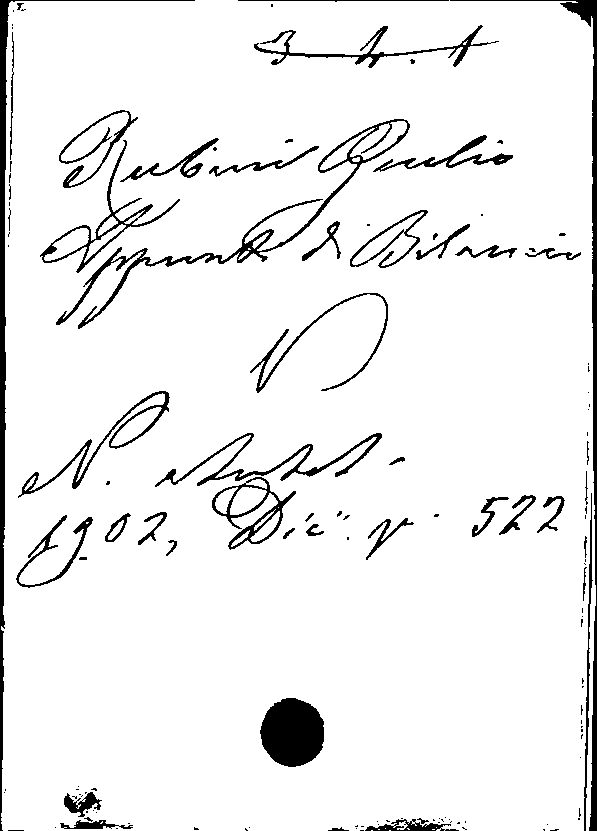 3. 4. 1
Rubini Giulio
Appunti di Bilancio
V
N. Antol.
1902, Dic. p. 522